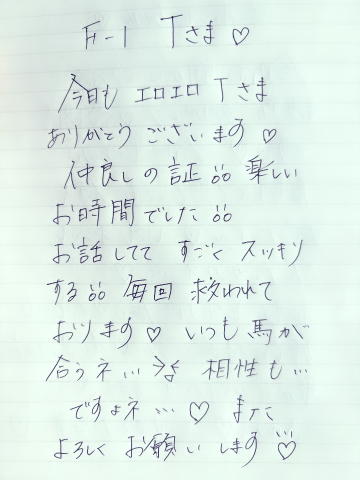 F-1 Tさま♡
今日も エロエロ Tさま
ありがとう ございます♡
仲良しの証 楽しい
お時間でした
お話してて すごく スッキリ
する 毎回 救われて
おります♡ いつも馬が
合うネ… 相性も…
ですよネ…♡ また
よろしく お願いします